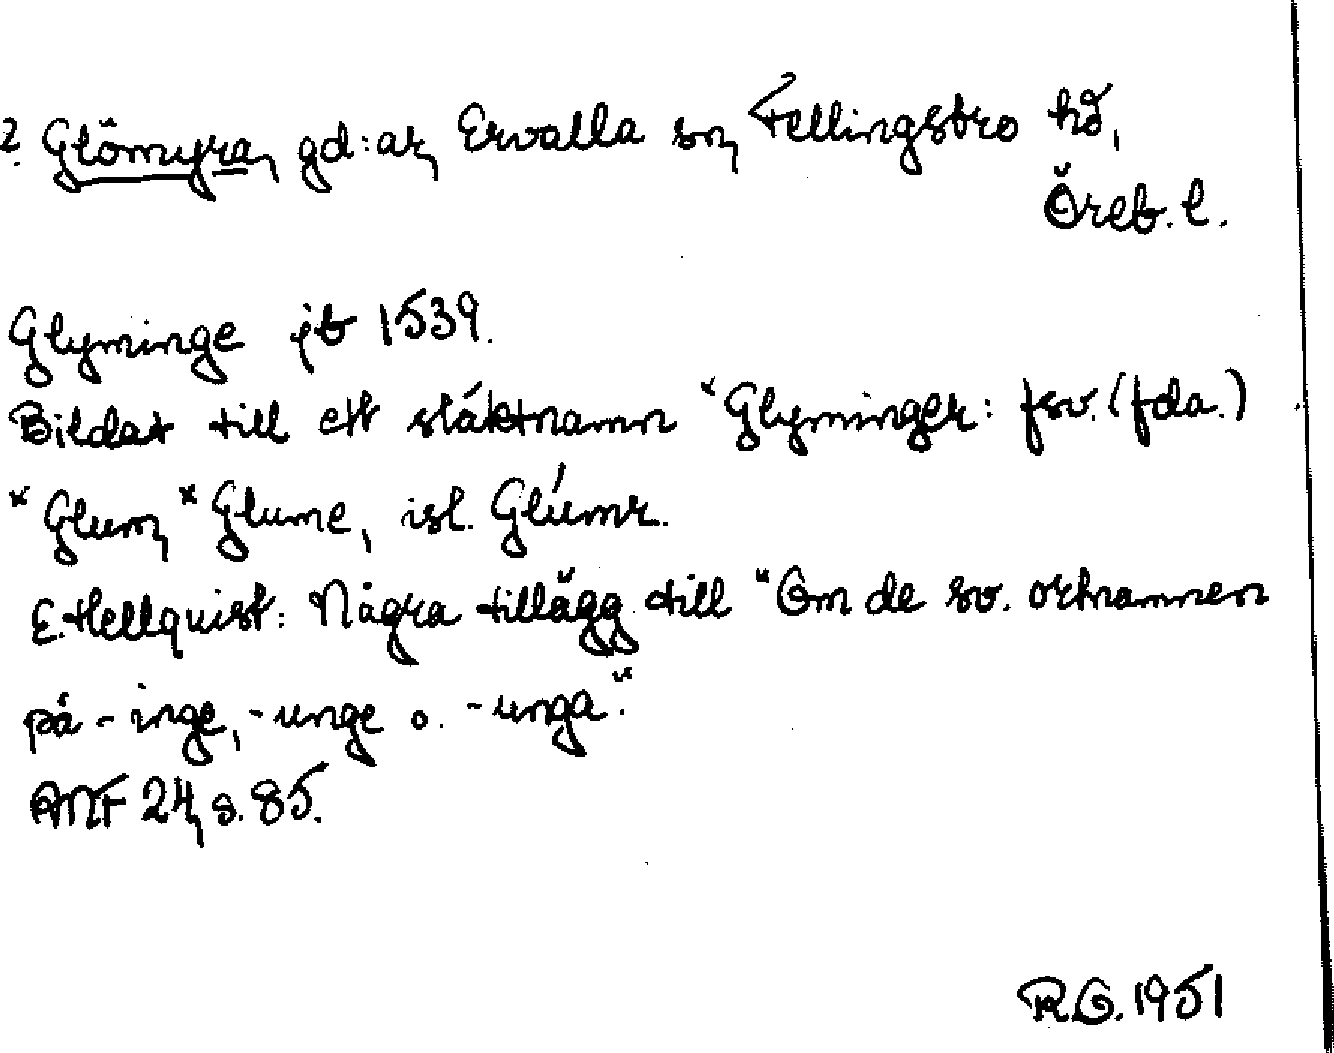 ? Glömyra, gd:ar, Ervalla sn, Fellingsbro hd,
Öreb. l.
Glyminge jb 1539.
Bildat till ett släktnamn *Glyminger: fsv. (fda.)
*Glum, *Glume, isl. Glúmr.
E. Hellquist: Några tillägg till "Om de sv. ortnamnen
på -inge, -unge o. -unga".
ANF 24, s. 85.
R.O. 1951